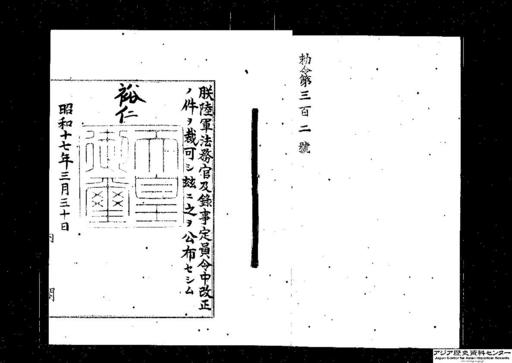 勅令第三百二號
朕陸軍法務官及錄事定員令中改正
ノ件ヲ裁可シ玆ニ之ヲ公布セシム
裕仁
天皇御璽
昭和十七年三月三十日
内閣
アジア歴史資料センター
Japan Center for Asian Historical Records